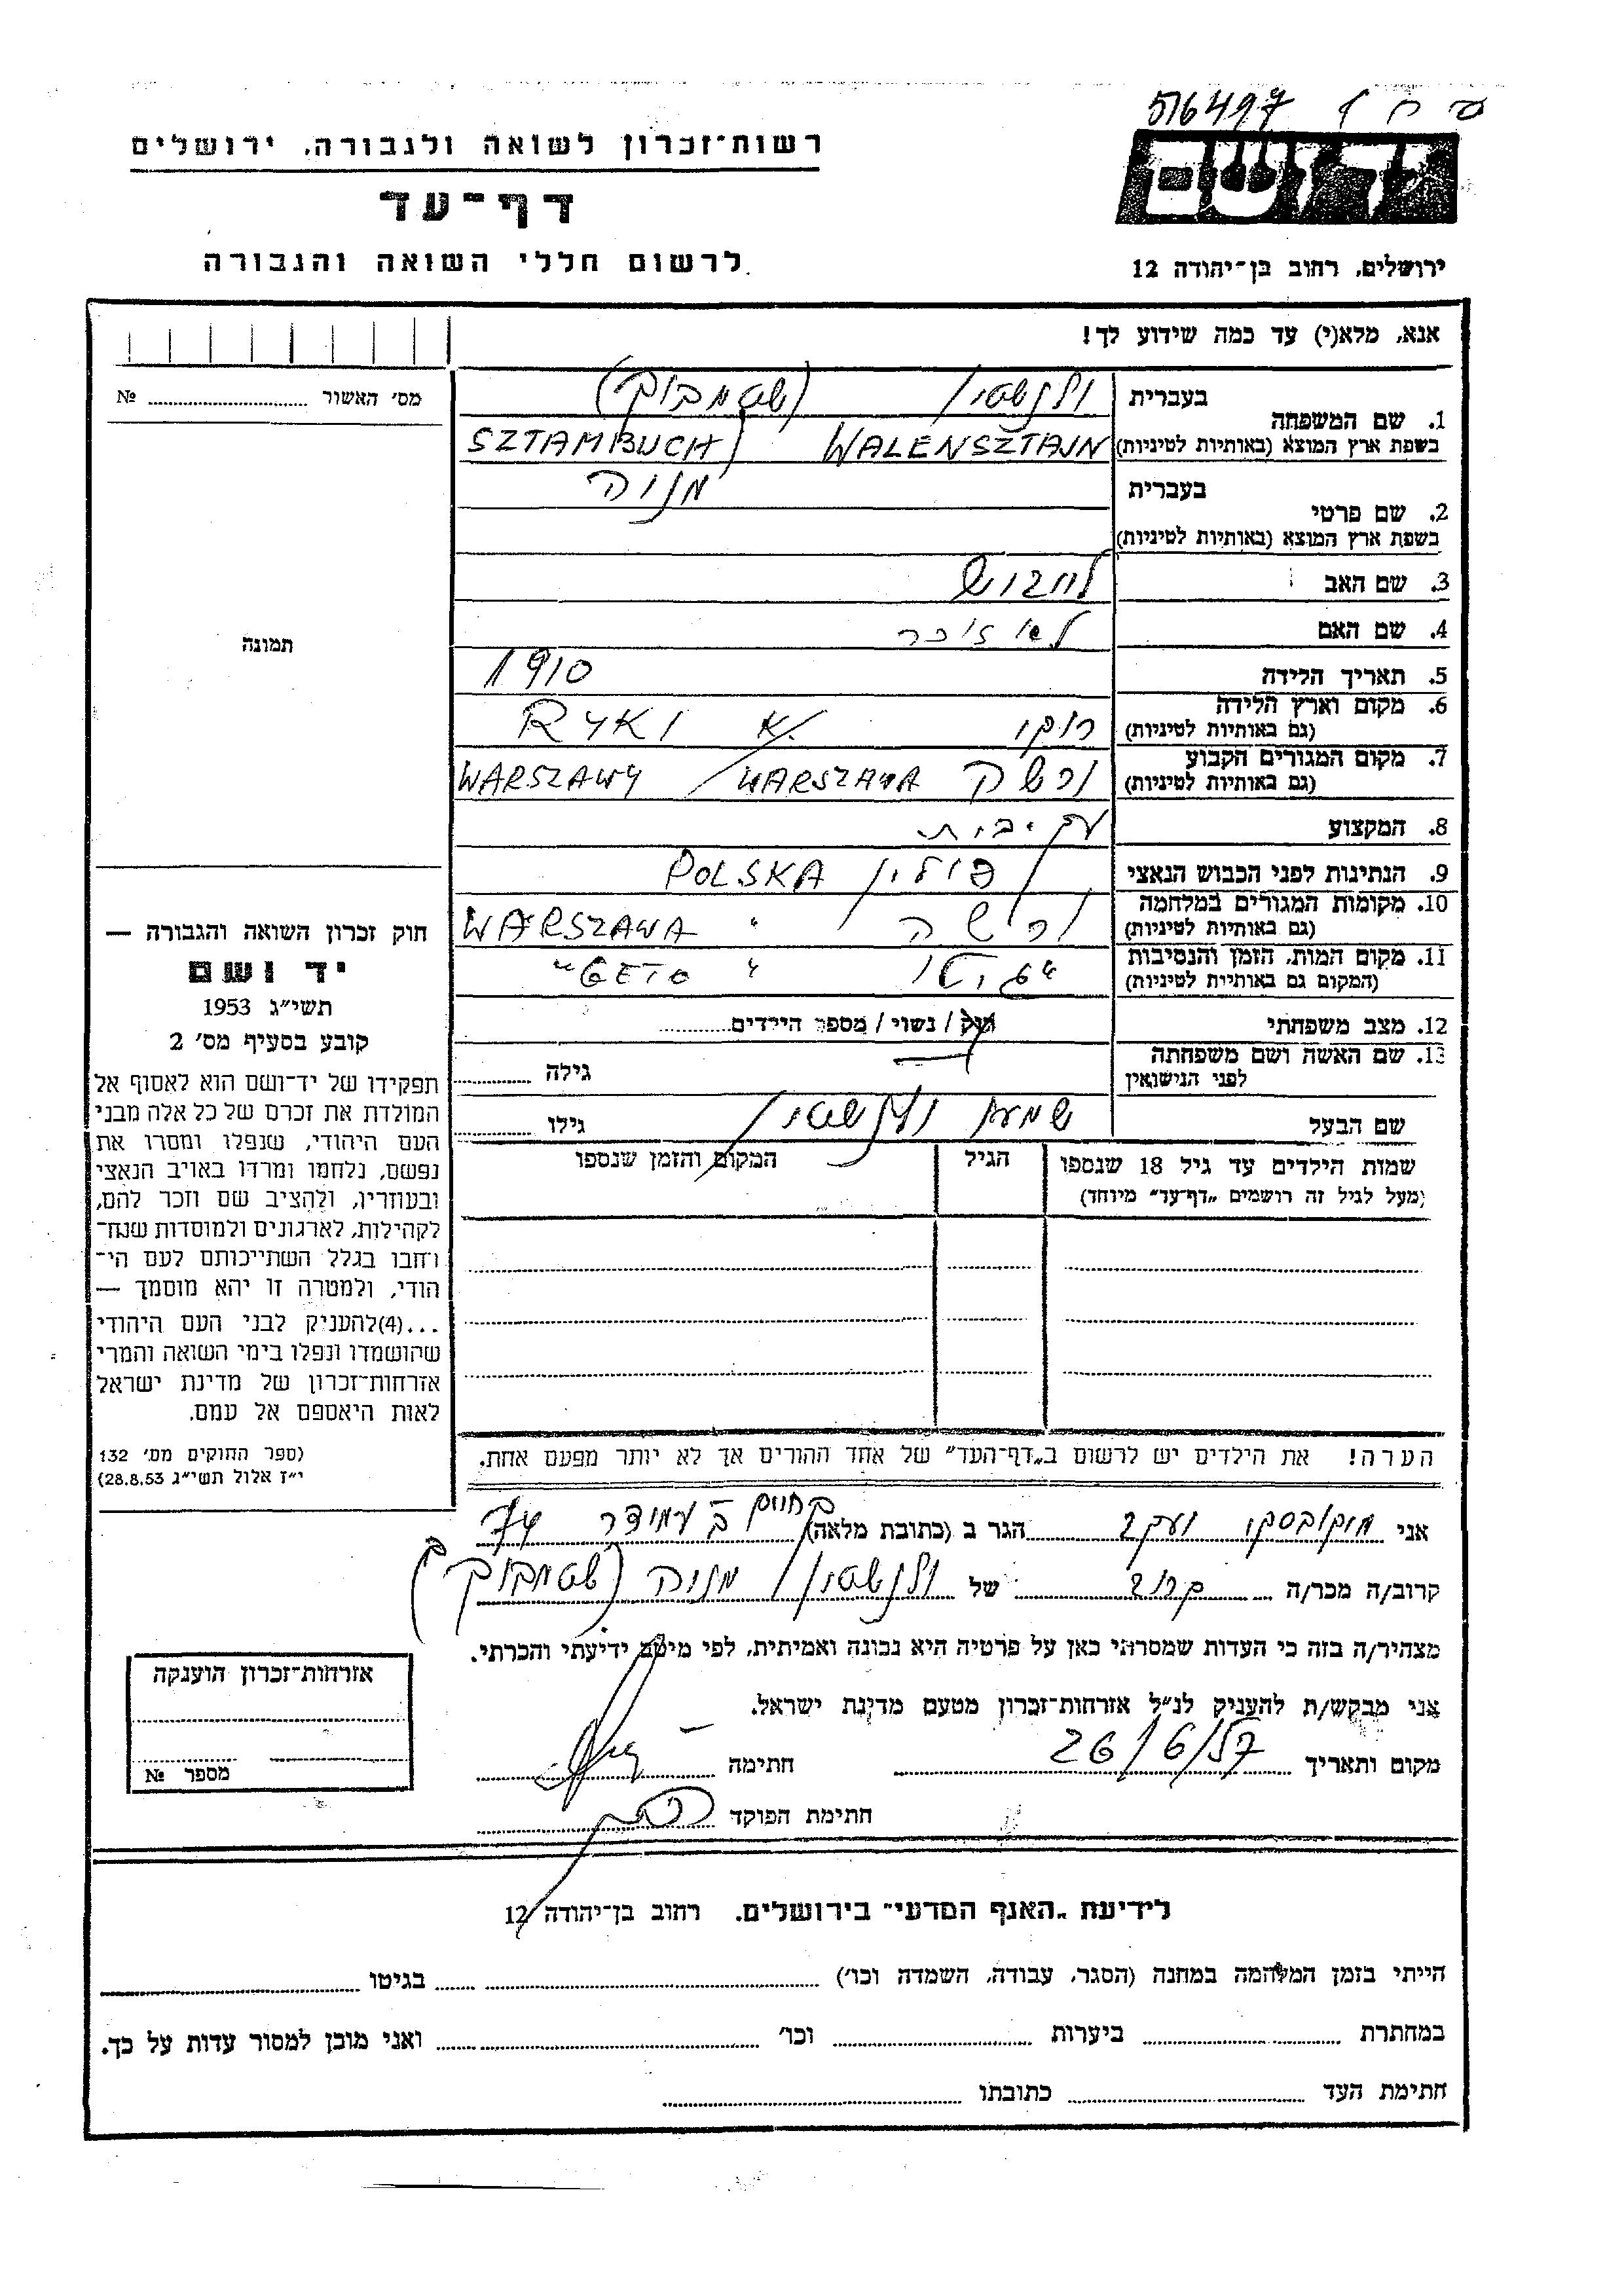 516497
רשות־זכרון לשואה ולגבורה, ירושלים
דף־עד
לרשום חללי השואה והגבורה
יד ושם
ירושלים, רחוב בן־יהודה 12
אנא, מלא(י) עד כמה שידוע לך!
מס׳ האשור № 
1. שם המשפחה
בעברית ולנשטיין (שטמבוך)
בשפת ארץ המוצא (באותיות לטיניות) WALENSZTAJN SZTAMBUCH
2. שם פרטי
בעברית מניה
בשפת ארץ המוצא (באותיות לטיניות)
3. שם האב
4. שם האם לא זוכר
5. תאריך הלידה 1910
6. מקום וארץ הלידה
(גם באותיות לטיניות) ריקי RYKI
7. מקום המגורים הקבוע
(גם באותיות לטיניות) WARSZAWA WARSZAWY
8. המקצוע עק. בית
9. הנתינות לפני הכבוש הנאצי פולין POLSKA
10. מקומות המגורים במלחמה
(גם באותיות לטיניות) ורשה WARSZAWA
11. מקום המות, הזמן והנסיבות
(המקום גם באותיות לטיניות) גיטו
12. מצב משפחתי רוק / נשוי / מספר הילדים
13. שם האשה ושם משפחתה
לפני הנישואין גילה
שם הבעל ולנשטיין גילו
שמות הילדים עד גיל 18 שנספו
(מעל לגיל זה רושמים „דף־עד״ מיוחד)
הגיל
המקום והזמן שנספו
תמונה
חוק זכרון השואה והגבורה —
יד ושם
תשי״ג 1953
קובע בסעיף מס׳ 2
תפקידו של יד־ושם הוא לאסוף אל
המולדת את זכרם של כל אלה מבני
העם היהודי, שנפלו ומסרו את
נפשם, נלחמו ומרדו באויב הנאצי
ובעוזריו, ולהציב שם וזכר להם,
לקהילות, לארגונים ולמוסדות שנח־
רחבו בגלל השתייכותם לעם הי־
הודי, ולמטרה זו יהא מוסמך —
...(4)להעניק לבני העם היהודי
שהושמדו ונפלו בימי השואה והמרי
אזרחות־זכרון של מדינת ישראל
לאות היאספם אל עמם.
(ספר החוקים מס׳ 132
י״ז אלול תשי״ג 28.8.53)
הערה! את הילדים יש לרשום ב„דף־העד״ של אחד ההורים אך לא יותר מפעם אחת.
אני יעקב הגר ב (כתובת מלאה)
קרוב/ה מכר/ה קרוב של ולנשטיין מניה (שטמבוך)
מצהיר/ה בזה כי העדות שמסרתי כאן על פרטיה היא נכונה ואמיתית, לפי מיטב ידיעתי והכרתי.
אני מבקש/ת להעניק לנ״ל אזרחות־זכרון מטעם מדינת ישראל.
מקום ותאריך 26/6/57 חתימה
חתימת הפוקד
אזרחות־זכרון הוענקה
מספר №
לידיעת „האגף המדעי״ בירושלים. רחוב בן־יהודה 12
הייתי בזמן המלחמה במחנה (הסגר, עבודה, השמדה וכו׳) בגיטו
במחתרת ביערות וכו׳ ואני מוכן למסור עדות על כך.
חתימת העד כתובתו